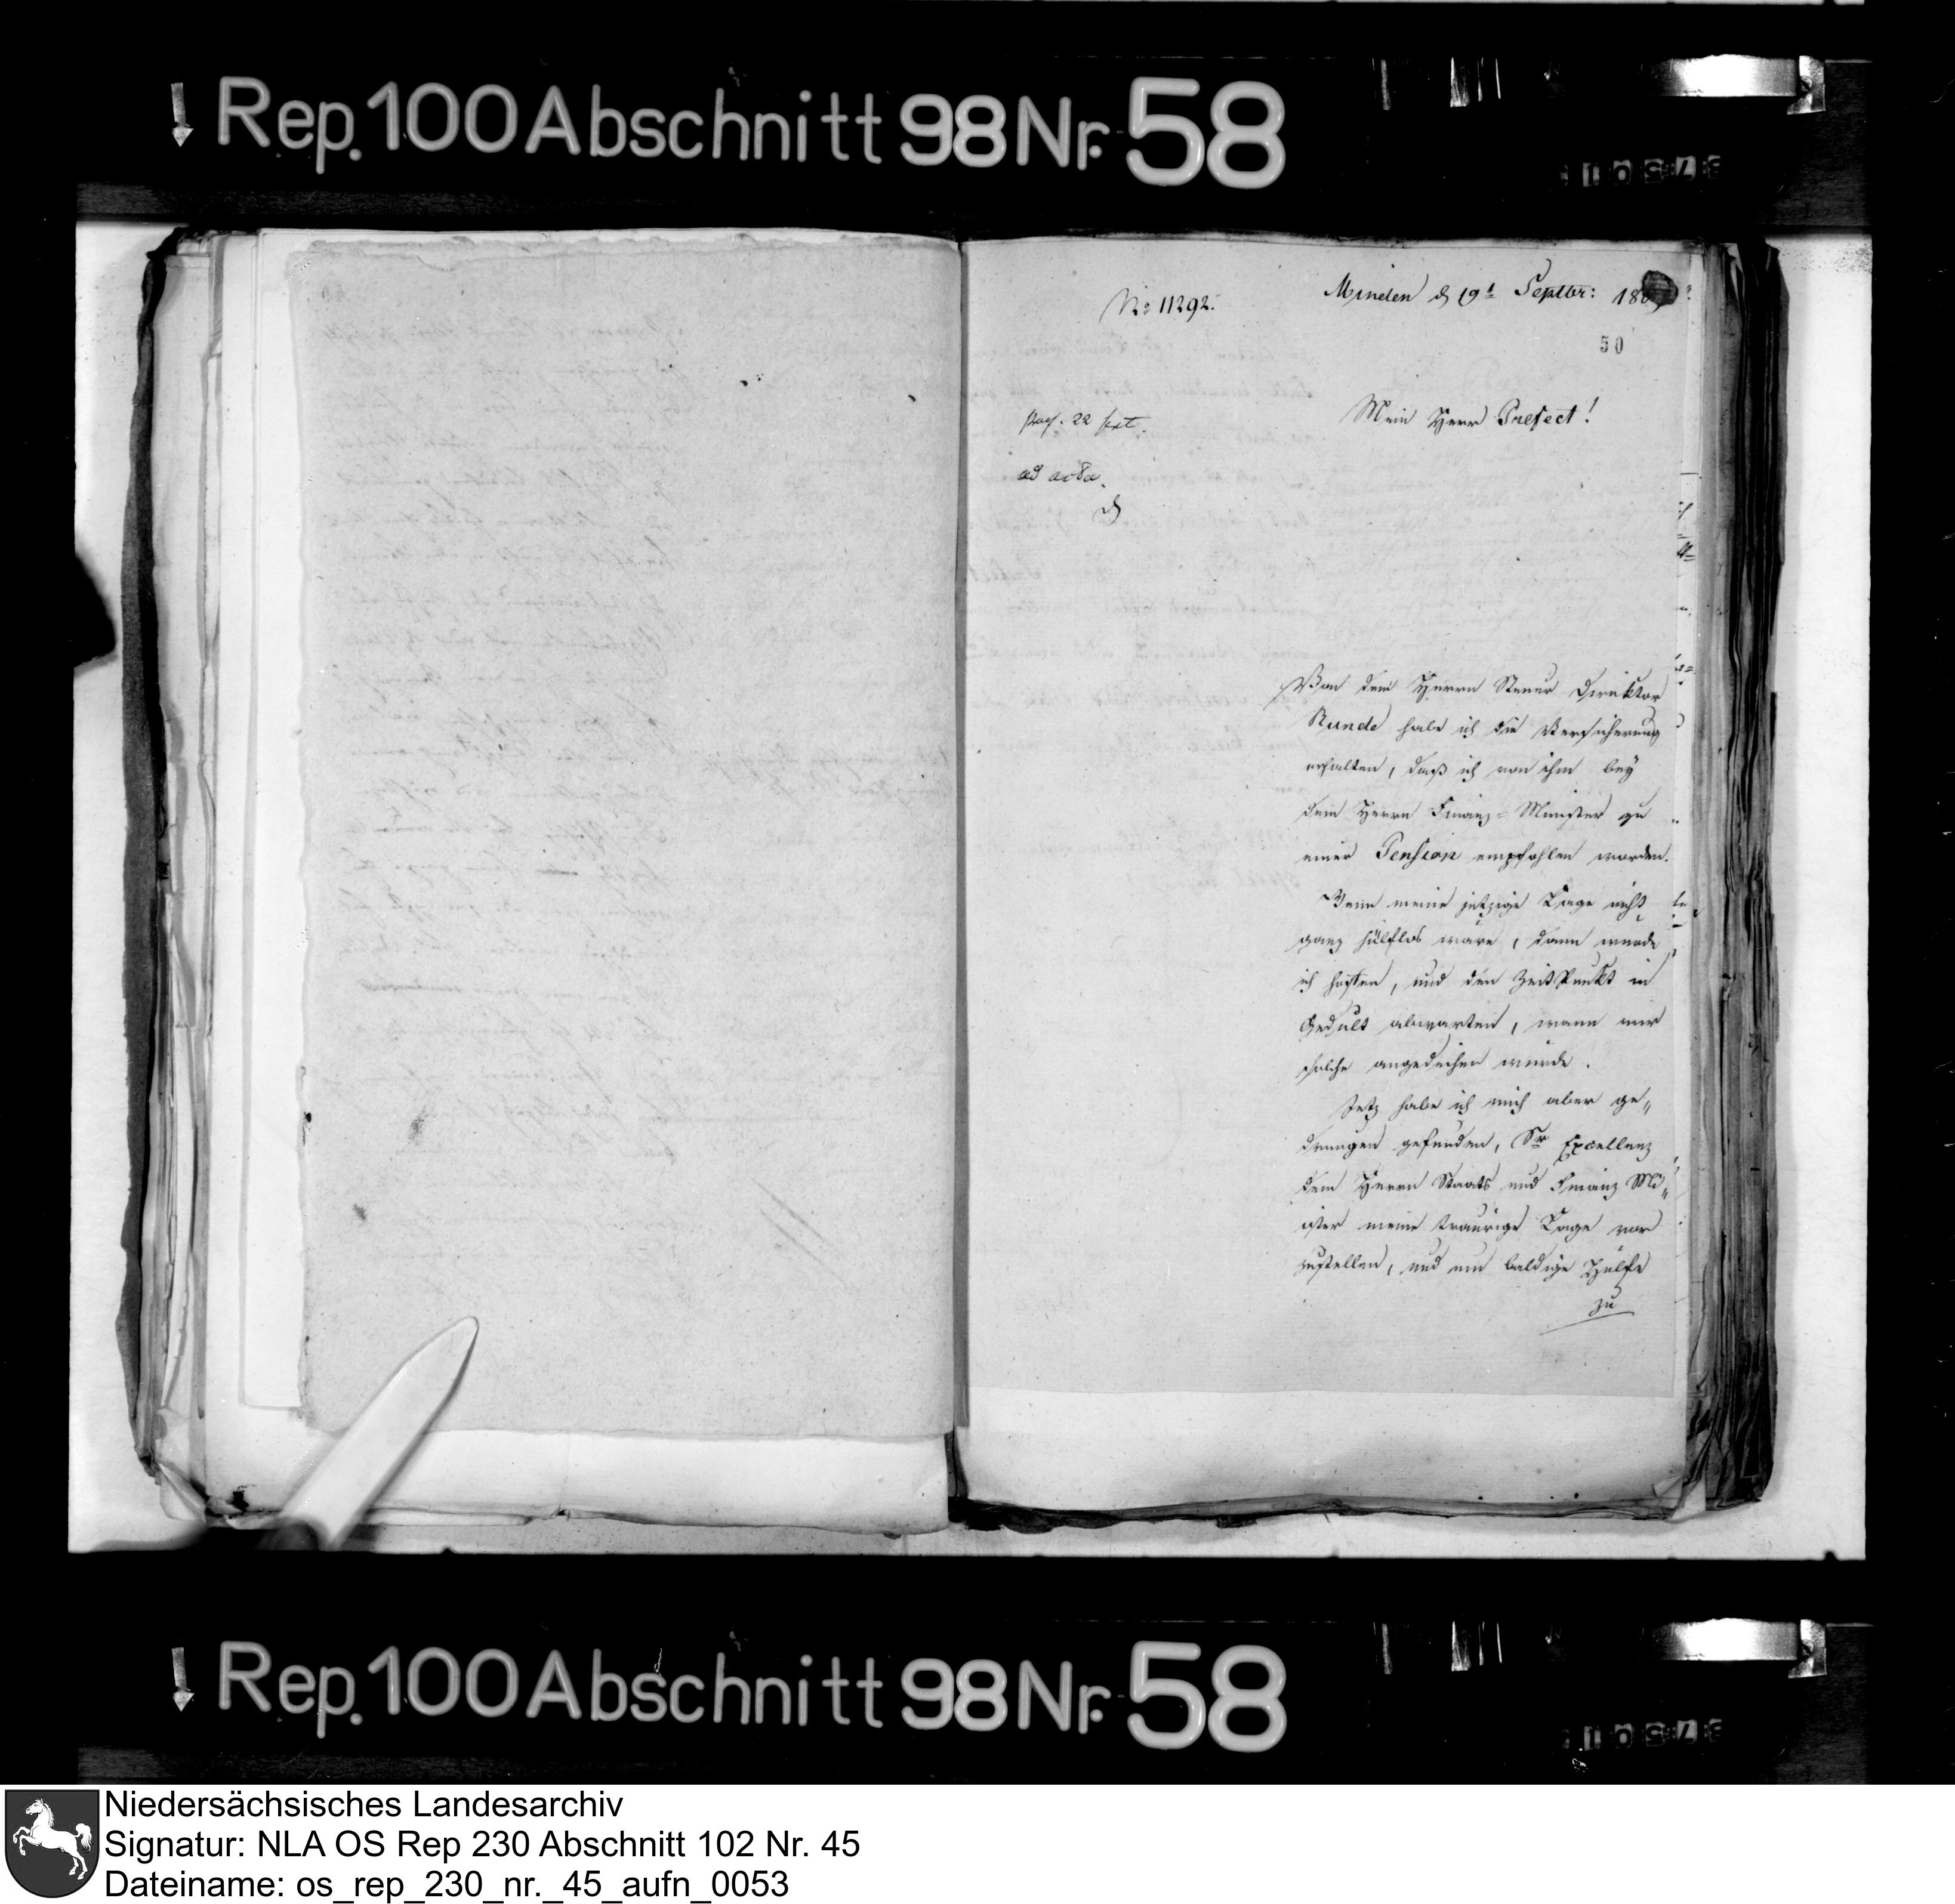 Rep. 100 Abschnitt 98 Nr. 58
No 11292.
Minden d 19t Septbr: 180
50
Mein Herr Prefect!
22 sept.
ad acta.
Von dem Herrn Steuer Direktor
Runde habe ich die Versicherung
erhalten, daß ich von ihm bey
dem Herrn Finanz-Minister zu
einer Pension empfohlen worden.
Wenn meine jetzige Lage nicht
ganz hülflos wäre, dann wurde
ich hoffen, und den ZeitPunkt in
Gedult abwarten, wann mir
solche angedeihen würde.
Jetz habe ich mich aber ge„
drungen gefunden, Sr Excellenz
dem Herrn Staats und Finanz Mi„
ister meine traurige Lage vor
zustellen, und um baldige Hülfe
zu
Rep. 100 Abschnitt 98 Nr. 58
Niedersächsisches Landesarchiv
Signatur: NLA OS Rep 230 Abschnitt 102 Nr. 45
Dateiname: os_rep_230_nr._45_aufn_0053